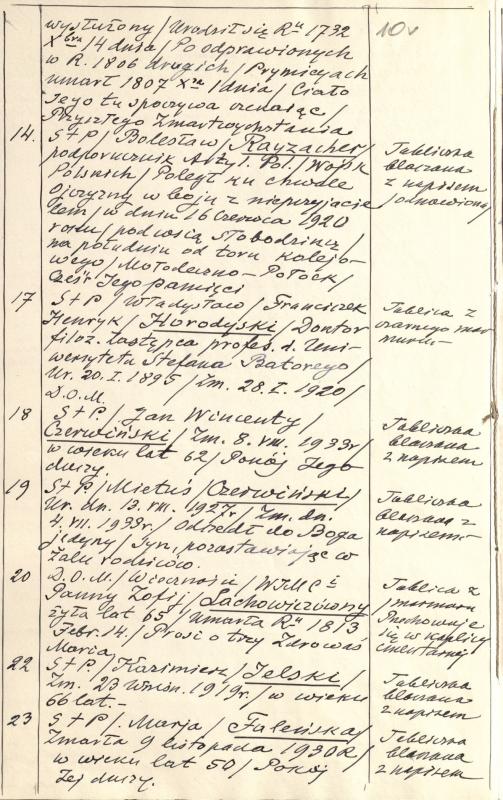 10v
wysłużony / Urodził się Rᵘ 1732
Xbra 14 dnia / Po odprawionych
w R. 1806 drugich / Prymicyach
umarł 1807 Xra 1 dnia / Ciało
Jego tu spoczywa czekając
Przyszłego Zmartwychwstania
14. S + P / Bolesław / Kayzacher /
podporucznik Artyl. Pol. / Wojsk
Polskich / Poległ ku chwale
Ojczyzny w boju z nieprzyjacie
lem / w dniu 16 Czerwca 1920
roku / pod wsią Słobodzincz /
na południu od toru kolejo-
wego / Mołodeczno – Połock /
Cześć Jego pamięci
Tabliczka
blaszana
z napisem
/odnowiona/
17 S + P / Władysław / Franciszek
Henryk / Horodyski / Doktor
filoz. Zastępca profes. d. Uni-
wersyteta Stefana Batorego /
Ur. 20. I. 1895 / Zm. 28. I. 1920 /
D.O.M.
Tablica z
czarnego mar
muru –
18 S + P. / Jan Wincenty /
Czerwiński / Zm. 8. VIII. 1933r /
w wieku lat 62 / Pokój Jego
duszy.
Tabliczka
blaszana
z napisem
19 S + P / Mietuś / Czerwiński /
Ur. dn. 13. VIII. 1927r / Zm. dn.
4. VII. 1933r. / Odszedł do Boga
jedyny / syn, pozostawiając w
żalu rodziców.
Tabliczka
blaszana z
napisem. –
20 D.O.M. / Wieczności WJMCi
Panny Zofij / Lachowiczówny
żyła lat 65 / umarła Rᵘ 1813
Febr. 14. / Prosi o trzy Zdrowaś
Maria
Tablica z
/marmuru
Przechowuje
się w kaplicy
cmentarnej
22 S + P. / Kazimierz / Jelski /
Zm. 23 Wrześn. 1919r. / w wieku
66 lat. –
Tabliczka
blaszana
z napisem
23 S + P / Marja / Faleńska /
Zmarła 9 listopada 1930 R /
w wieku lat 50 / Pokój
Jej duszy.
Tabliczka
blaszana
z napisem